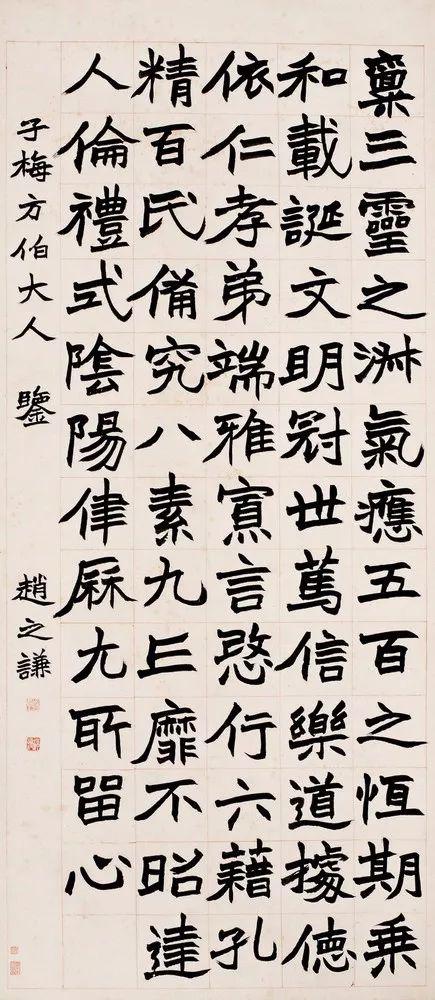 稟三靈之淑氣應五百之恆期乗
和載誕文明冠世篤信樂道據德
依仁孝弟端雅寡言慤行六藉孔
精百氏備究八素九丘靡不昭達
人倫禮式陰陽律厤尤所留心
子梅方伯大人 鑒
趙之謙